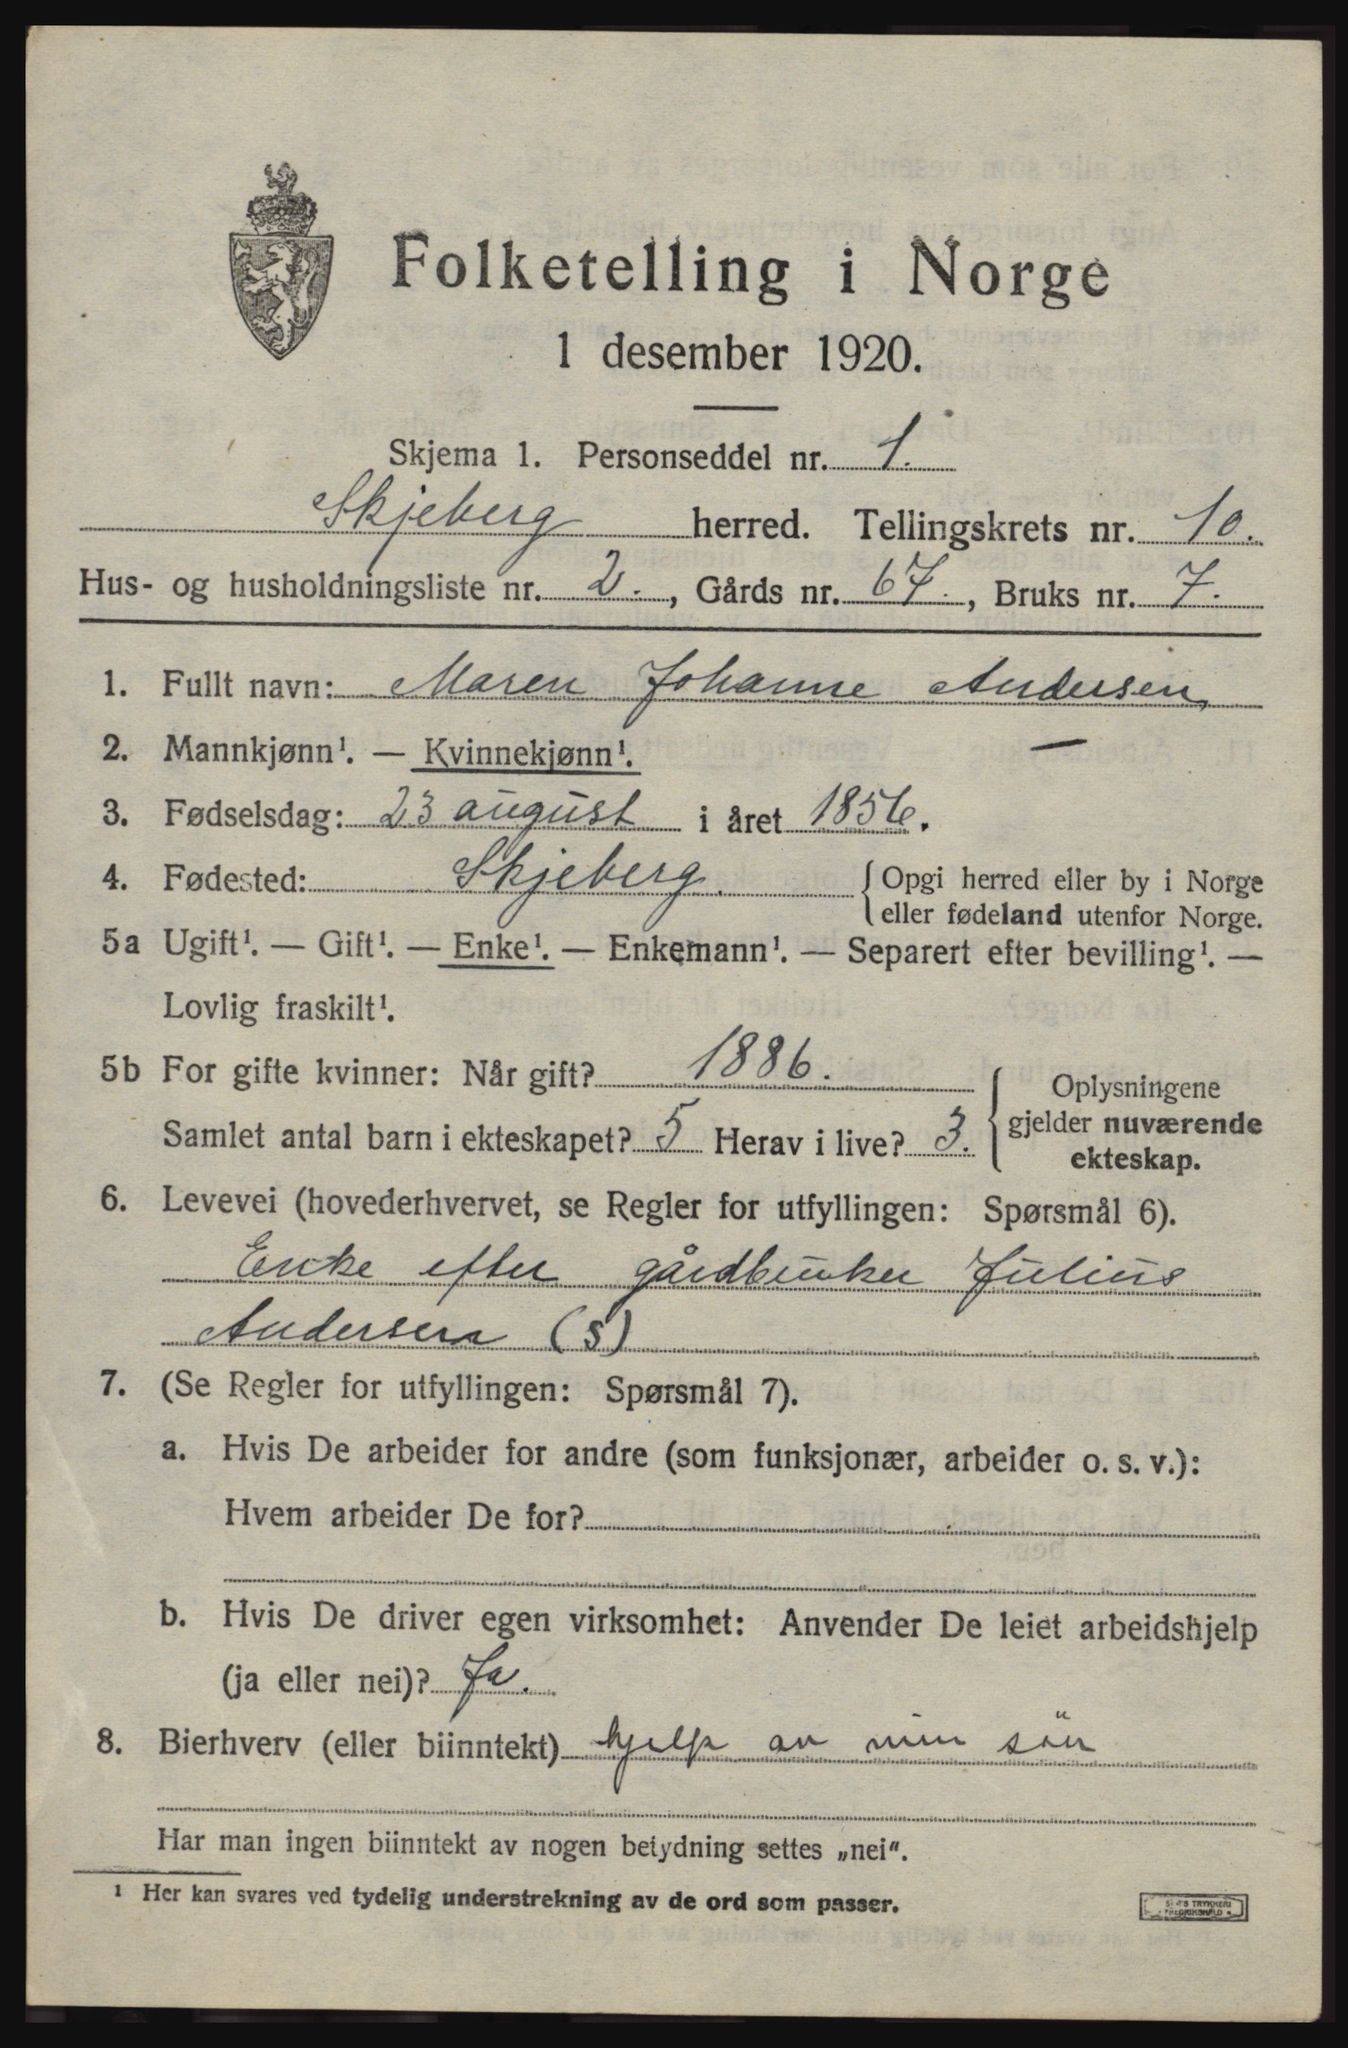 Folketelling i Norge
1 desember 1920.
Skjema 1. Personseddel nr. 1.
Skjeberg herred. Tellingskrets nr. 10.
Hus- og husholdningsliste nr. 2., Gårds nr. 67., Bruks nr. 7.
1. Fullt navn: Maren Johanne Andersen,
2. Mannkjønn¹. — Kvinnekjønn¹. —
3. Fødselsdag: 23 august i året 1856.
4. Fødested: Skjeberg. { Opgi herred eller by i Norge
eller fødeland utenfor Norge.
5a Ugift¹. — Gift¹. — Enke¹. — Enkemann¹. — Separert efter bevilling¹. —
Lovlig fraskilt¹.
5b For gifte kvinner: Når gift? 1886. { Oplysningene
gjelder nuværende
ekteskap.
Samlet antal barn i ekteskapet? 5 Herav i live? 3.
6. Levevei (hovederhvervet, se Regler for utfyllingen: Spørsmål 6).
Enke efter gårdbruker Julius
Andersen (s)
7. (Se Regler for utfyllingen: Spørsmål 7).
a. Hvis De arbeider for andre (som funksjonær, arbeider o. s. v.):
Hvem arbeider De for?
b. Hvis De driver egen virksomhet: Anvender De leiet arbeidshjelp
(ja eller nei)? Ja.
8. Bierhverv (eller biinntekt) hjelp av min sön
Har man ingen biinntekt av nogen betydning settes „nei".
¹ Her kan svares ved tydelig understrekning av de ord som passer.
TRYKKERI
FREDRIKSHALD